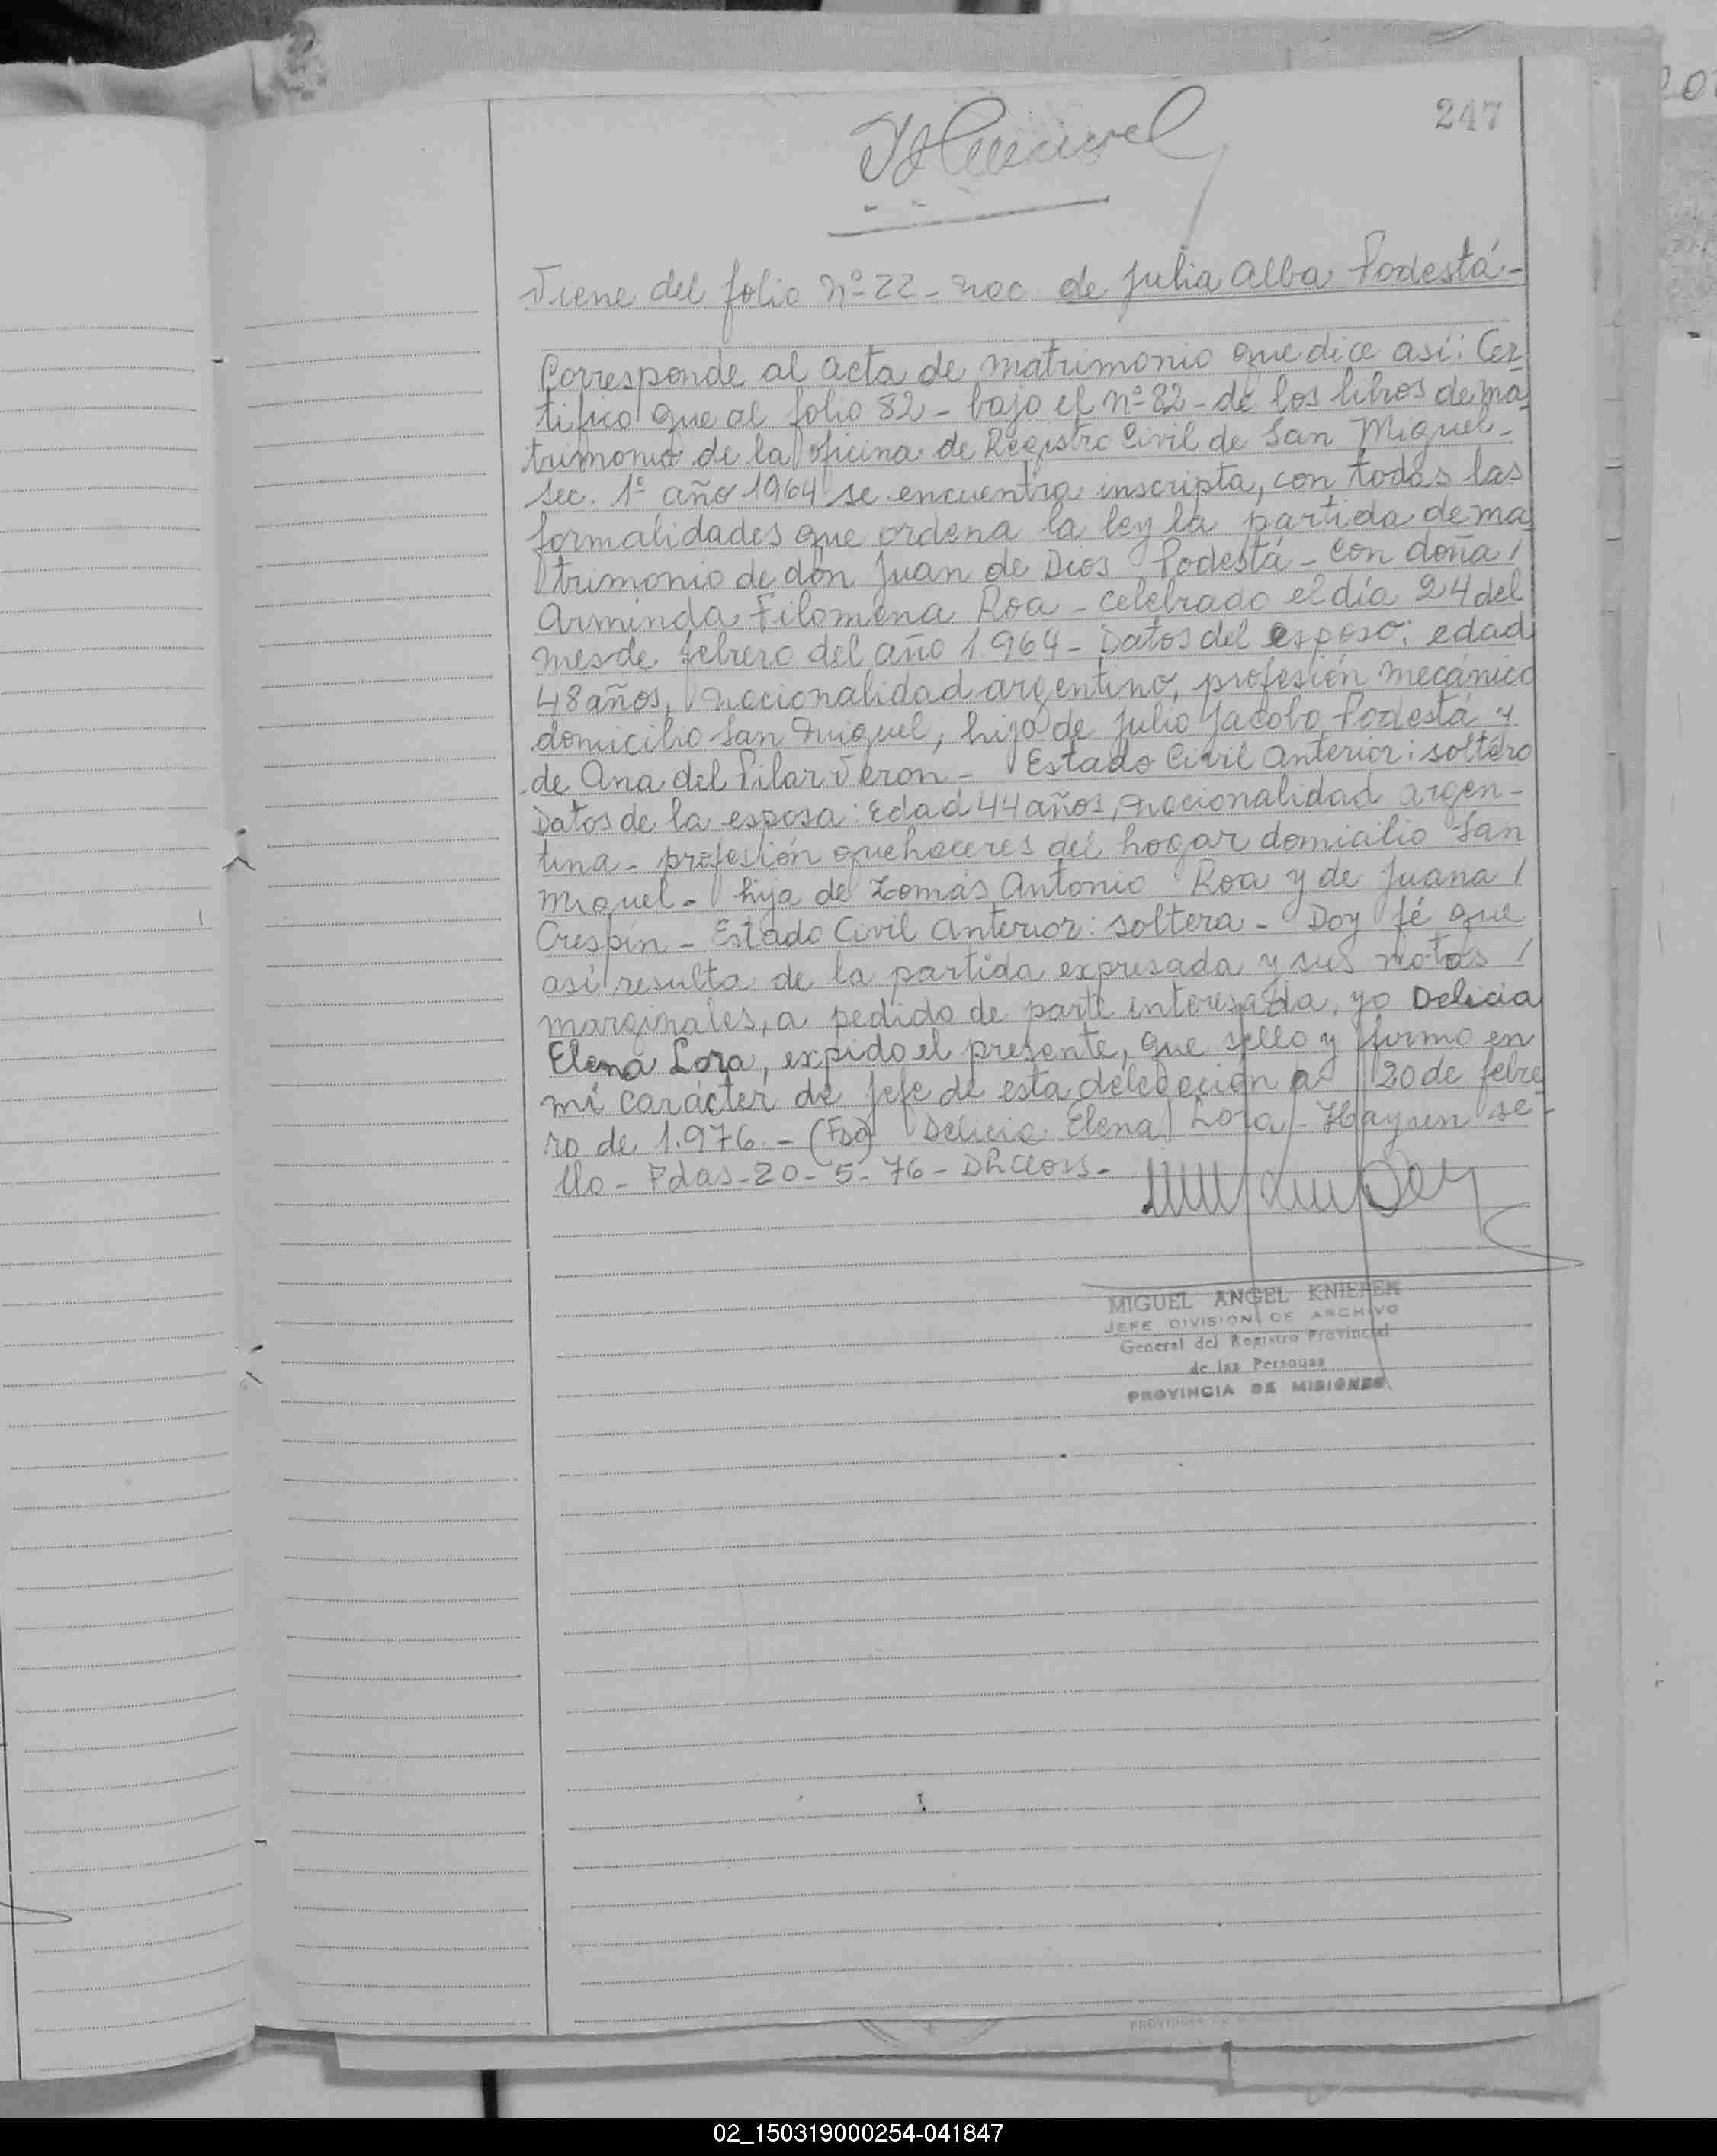 247
Viene del folio Nº 22 - nac de Julia Alba Podestá -
Corresponde al acta de matrimonio que dice así: Cer
tifico que al folio 82 - bajo el nº 82 - de los libros de ma
trimonio de la oficina de Registro Civil de San Miguel -
Sec. 1º año 1964 se encuentra inscripta, con todas las
formalidades que ordena la ley la partida de ma
trimonio de don Juan de Dios Podestá - con doña /
Arminda Filomena Roa - celebrado el día 24 del
mes de febrero del año 1.964 - Datos del esposo: edad
48 años, nacionalidad argentino, profesión mecánico
domicilio San Miguel, hijo de Julio Jacobo Podestá y
de Ana del Pilar Verón - Estado Civil Anterior: soltero
Datos de la esposa: Edad 44 años, nacionalidad argen-
tina - profesión quehaceres del hogar domicilio San
Miguel - hija de Tomás Antonio Roa y de Juana /
Crespín - Estado Civil Anterior: soltera - Doy fé que
así resulta de la partida expresada y sus notas /
marginales, a pedido de parte interesada, yo Delicia
Elena Lora, expido el presente, que sello y firmo en
mi carácter de Jefe de esta delegación a 20 de febre
ro de 1.976 - (Fdo) Delicia Elena Lora - Hay un se-
llo - Pdas - 20 - 5 - 76 -
MIGUEL ANGEL KNIEPER
JEFE DIVISION DE ARCHIVO
General del Registro Provincial
de las Personas
PROVINCIA DE MISIONES
02_150319000254-041847